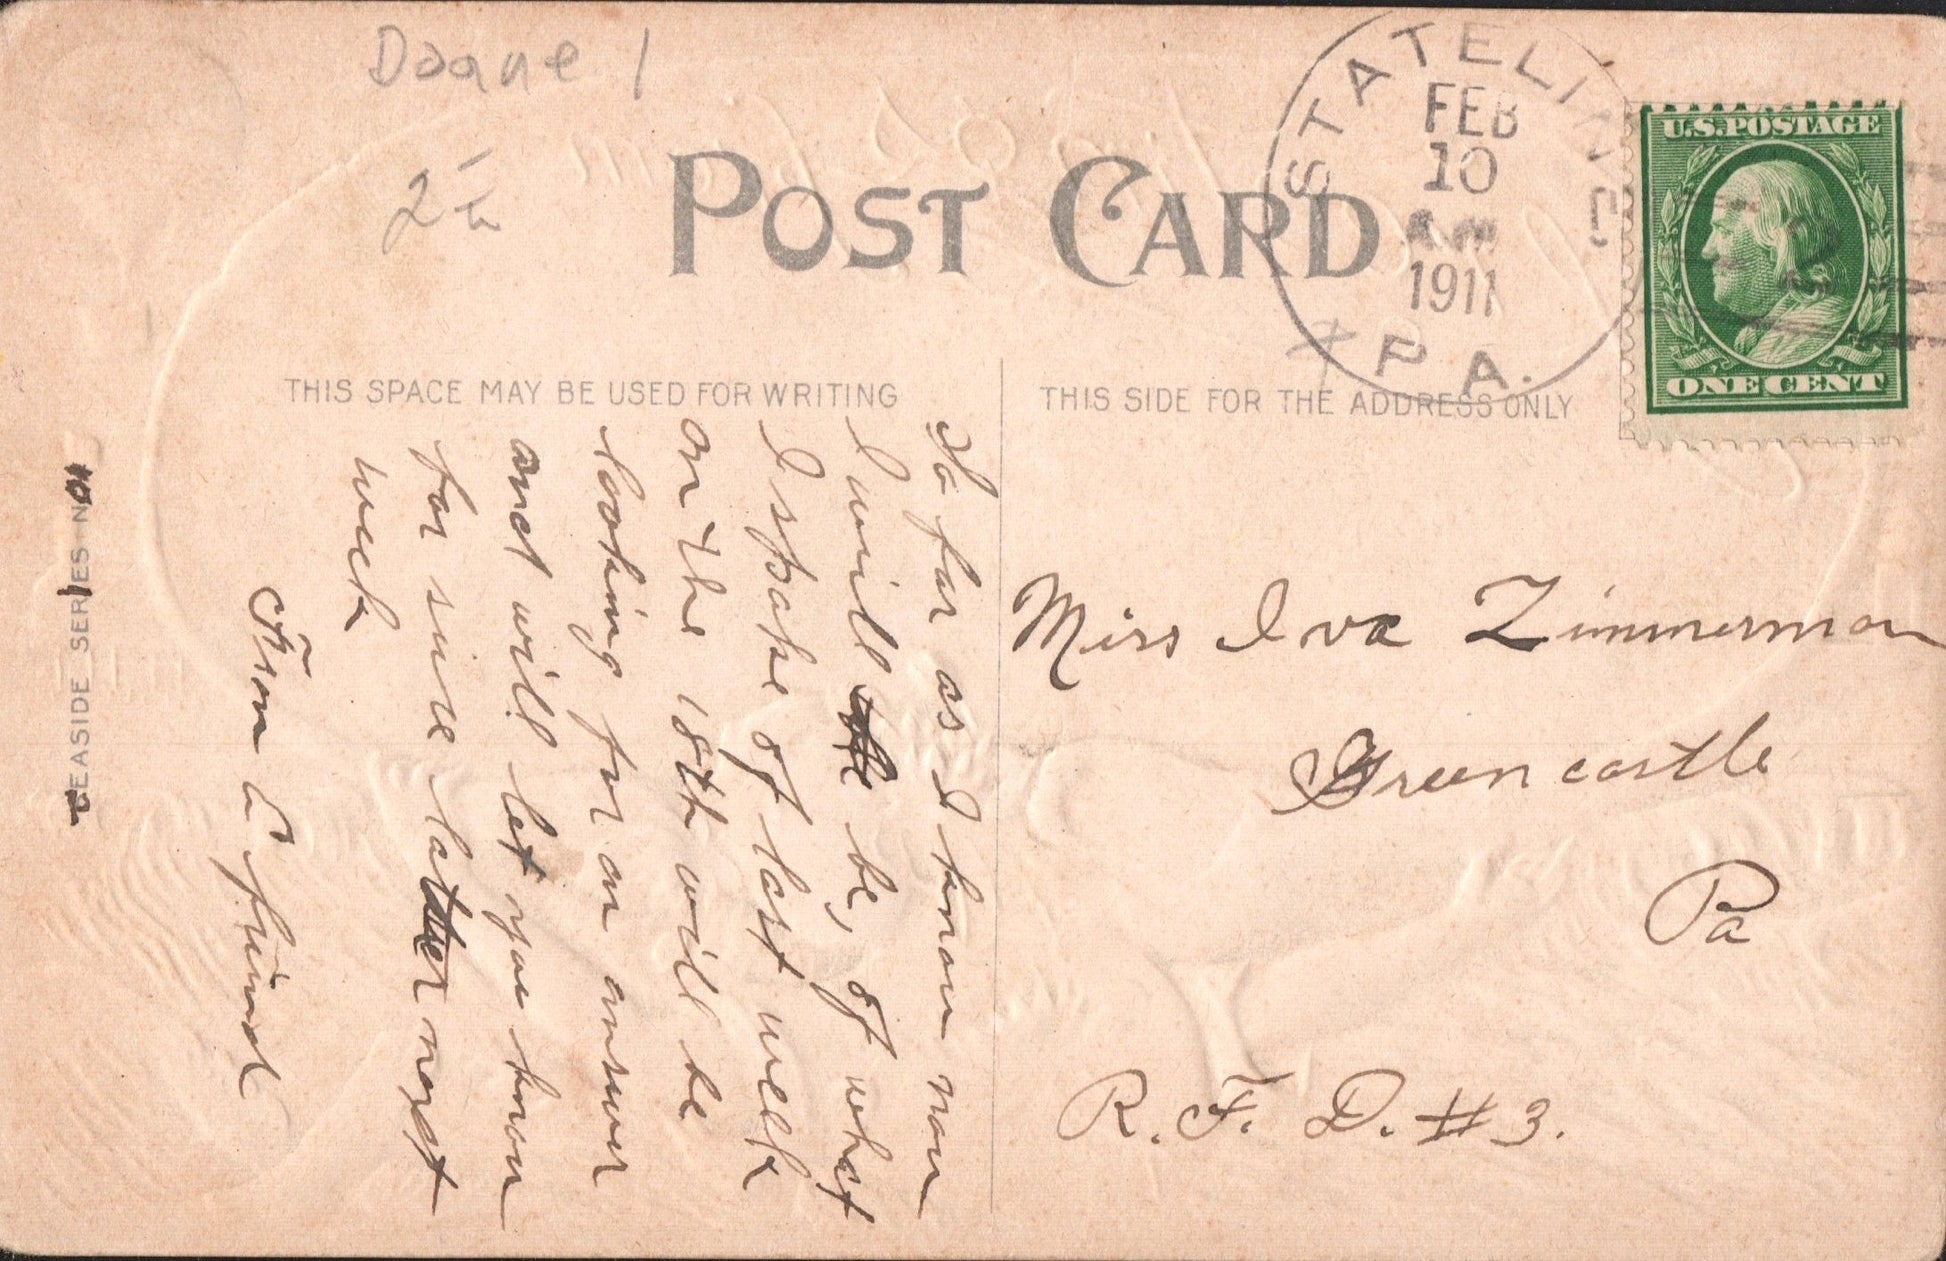 Doane 1
POST CARD
STATELINE,
FEB
10
1911
PA.
U.S. POSTAGE
ONE CENT
THIS SPACE MAY BE USED FOR WRITING
THIS SIDE FOR THE ADDRESS ONLY
SEASIDE SERIES NO
So far as I know now
I will be, of what
I spoke of last week
on the 18th will be
looking for an answer
and will let you know
for sure later next
week
From a friend
Miss Iva Zimmerman
Greencastle
Pa
R. F. D. #3.